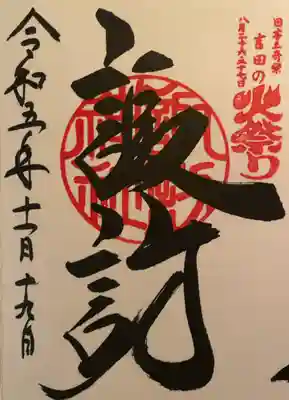 日本三奇祭
吉田の火祭り
八月二十六・二十七日
諏訪
令和五年十一月十九日